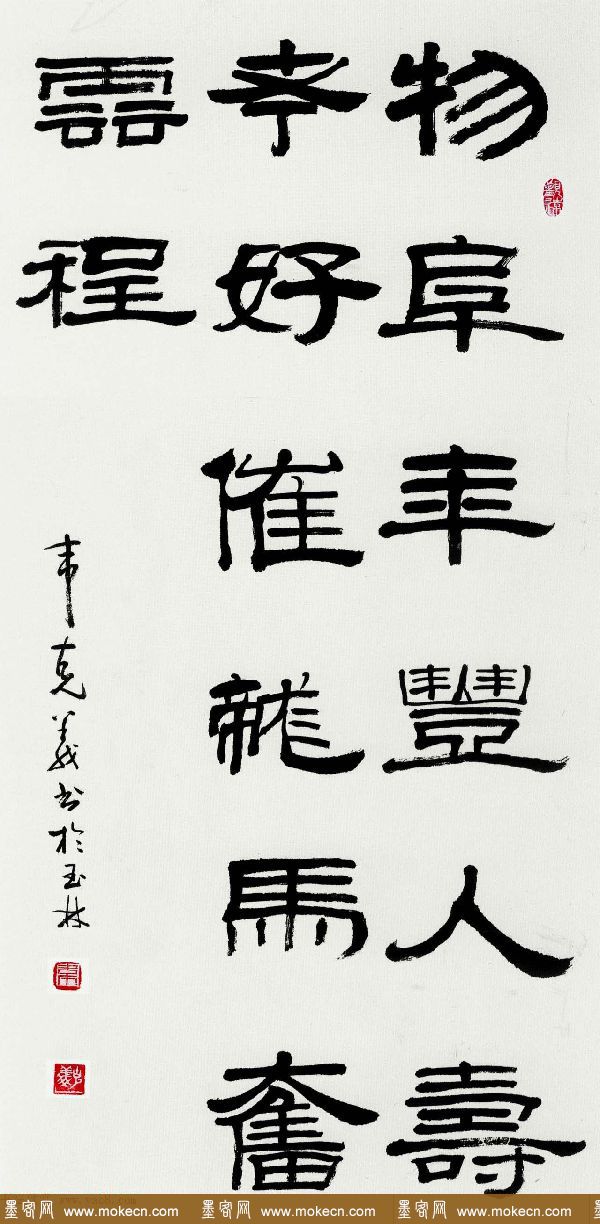 物阜年豐人壽
考好催龍馬奮
雲程
韋克義书於玉林
www.mokecn.com 墨客网 www.mokecn.com 墨客网 www.mokecn.com 墨